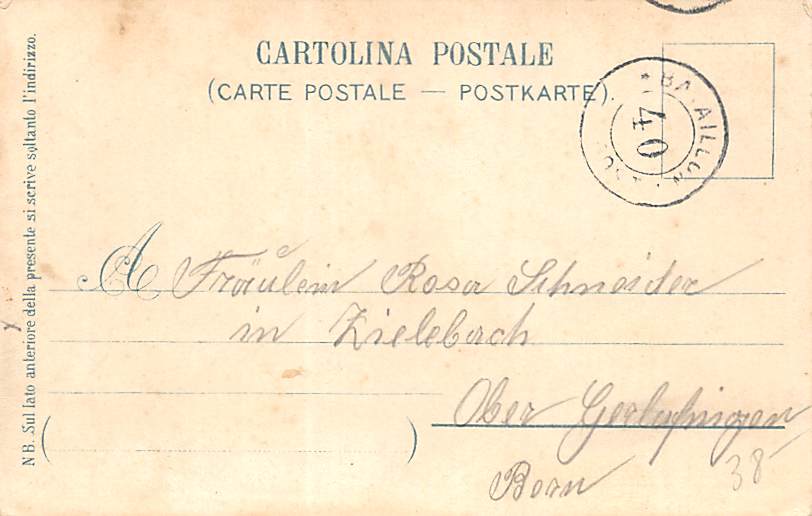 CARTOLINA POSTALE
(CARTE POSTALE — POSTKARTE).
40
A Fräulein Rosa Schneider
in Zielebach
Ober
Bern
38
NB. Sul lato anteriore della presente si scrive soltanto l'indirizzo.